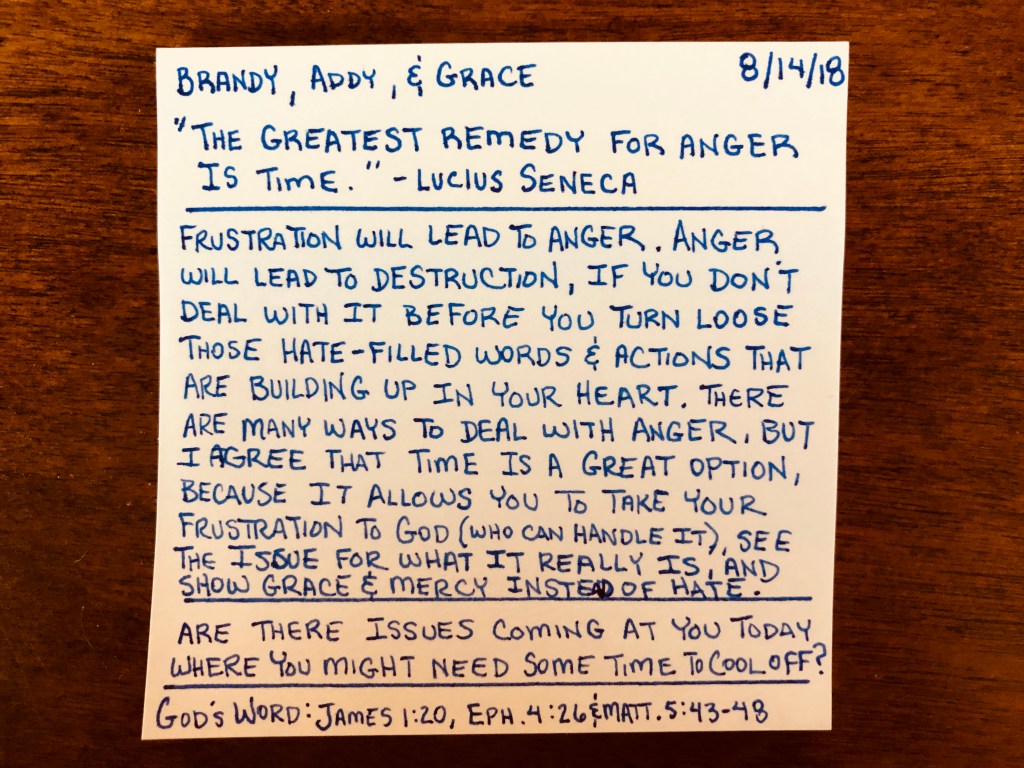 BRANDY, ADDY, & GRACE 8/14/18
"THE GREATEST REMEDY FOR ANGER
IS TIME." - LUCIUS SENECA
FRUSTRATION WILL LEAD TO ANGER. ANGER
WILL LEAD TO DESTRUCTION, IF YOU DON'T
DEAL WITH IT BEFORE YOU TURN LOOSE
THOSE HATE-FILLED WORDS & ACTIONS THAT
ARE BUILDING UP IN YOUR HEART. THERE
ARE MANY WAYS TO DEAL WITH ANGER, BUT
I AGREE THAT TIME IS A GREAT OPTION,
BECAUSE IT ALLOWS YOU TO TAKE YOUR
FRUSTRATION TO GOD (WHO CAN HANDLE IT), SEE
THE ISSUE FOR WHAT IT REALLY IS, AND
SHOW GRACE & MERCY INSTEAD OF HATE.
ARE THERE ISSUES COMING AT YOU TODAY
WHERE YOU MIGHT NEED SOME TIME TO COOL OFF?
GOD'S WORD: JAMES 1:20, EPH. 4:26 & MATT. 5:43-48